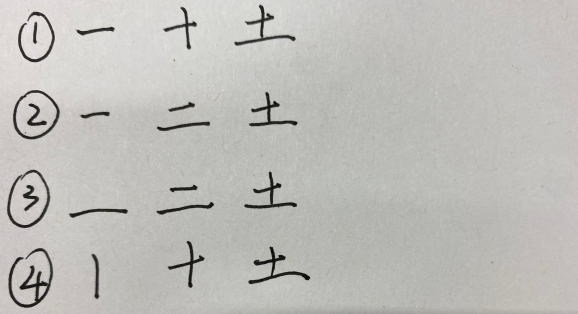 ① 一 十 土
② 一 二 土
③ 一 二 土
④ 丨 十 土